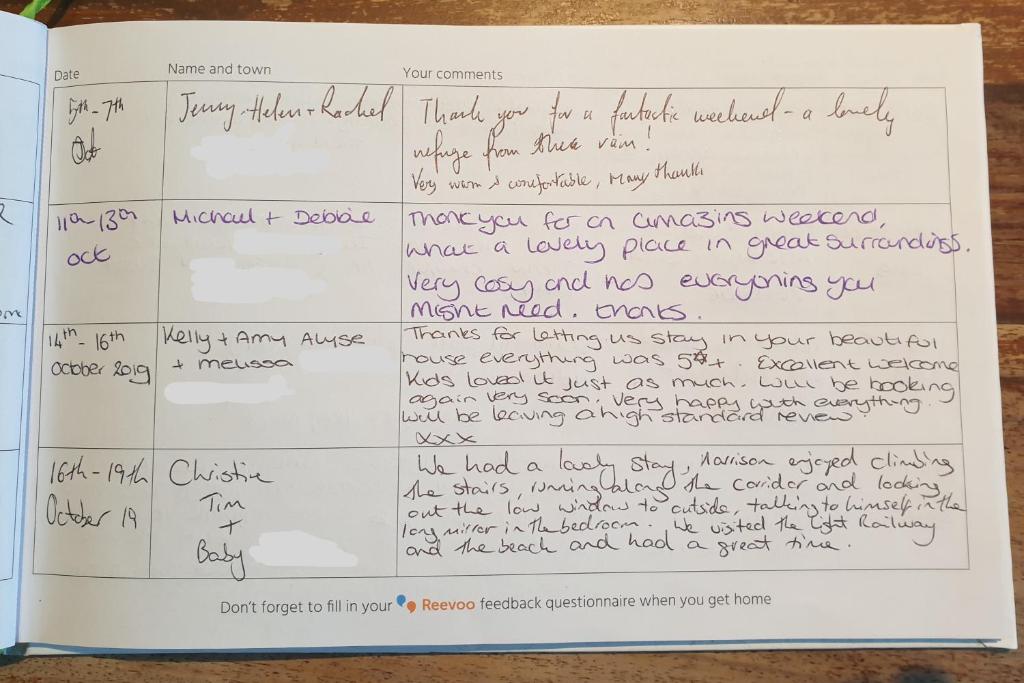 Date Name and town Your comments
5th - 7th
Oct
Jenny, Helen + Rachel
Thank you for a fantastic weekend - a lovely
refuge from the rain!
Very warm & comfortable, Many thanks
11th - 13th
oct
Michael + Debbie
Thank you for an amazing weekend,
what a lovely place in great surroundings.
Very cosy and has everything you
might need. thanks.
14th - 16th
October 2019
Kelly + Amy Alyse
+ melissa
Thanks for letting us stay in your beautiful
house everything was 5☆+. Excellent welcome
Kids loved it just as much. Will be booking
again very soon. Very happy with everything.
Will be leaving a high standard review
xxx
16th - 19th
October 19
Christie
Tim
+
Baby
We had a lovely stay, Harrison enjoyed climbing
the stairs, running along the corridor and looking
out the low window to outside, talking to himself in the
long mirror in the bedroom. We visited the Light Railway
and the beach and had a great time.
Don't forget to fill in your Reevoo feedback questionnaire when you get home